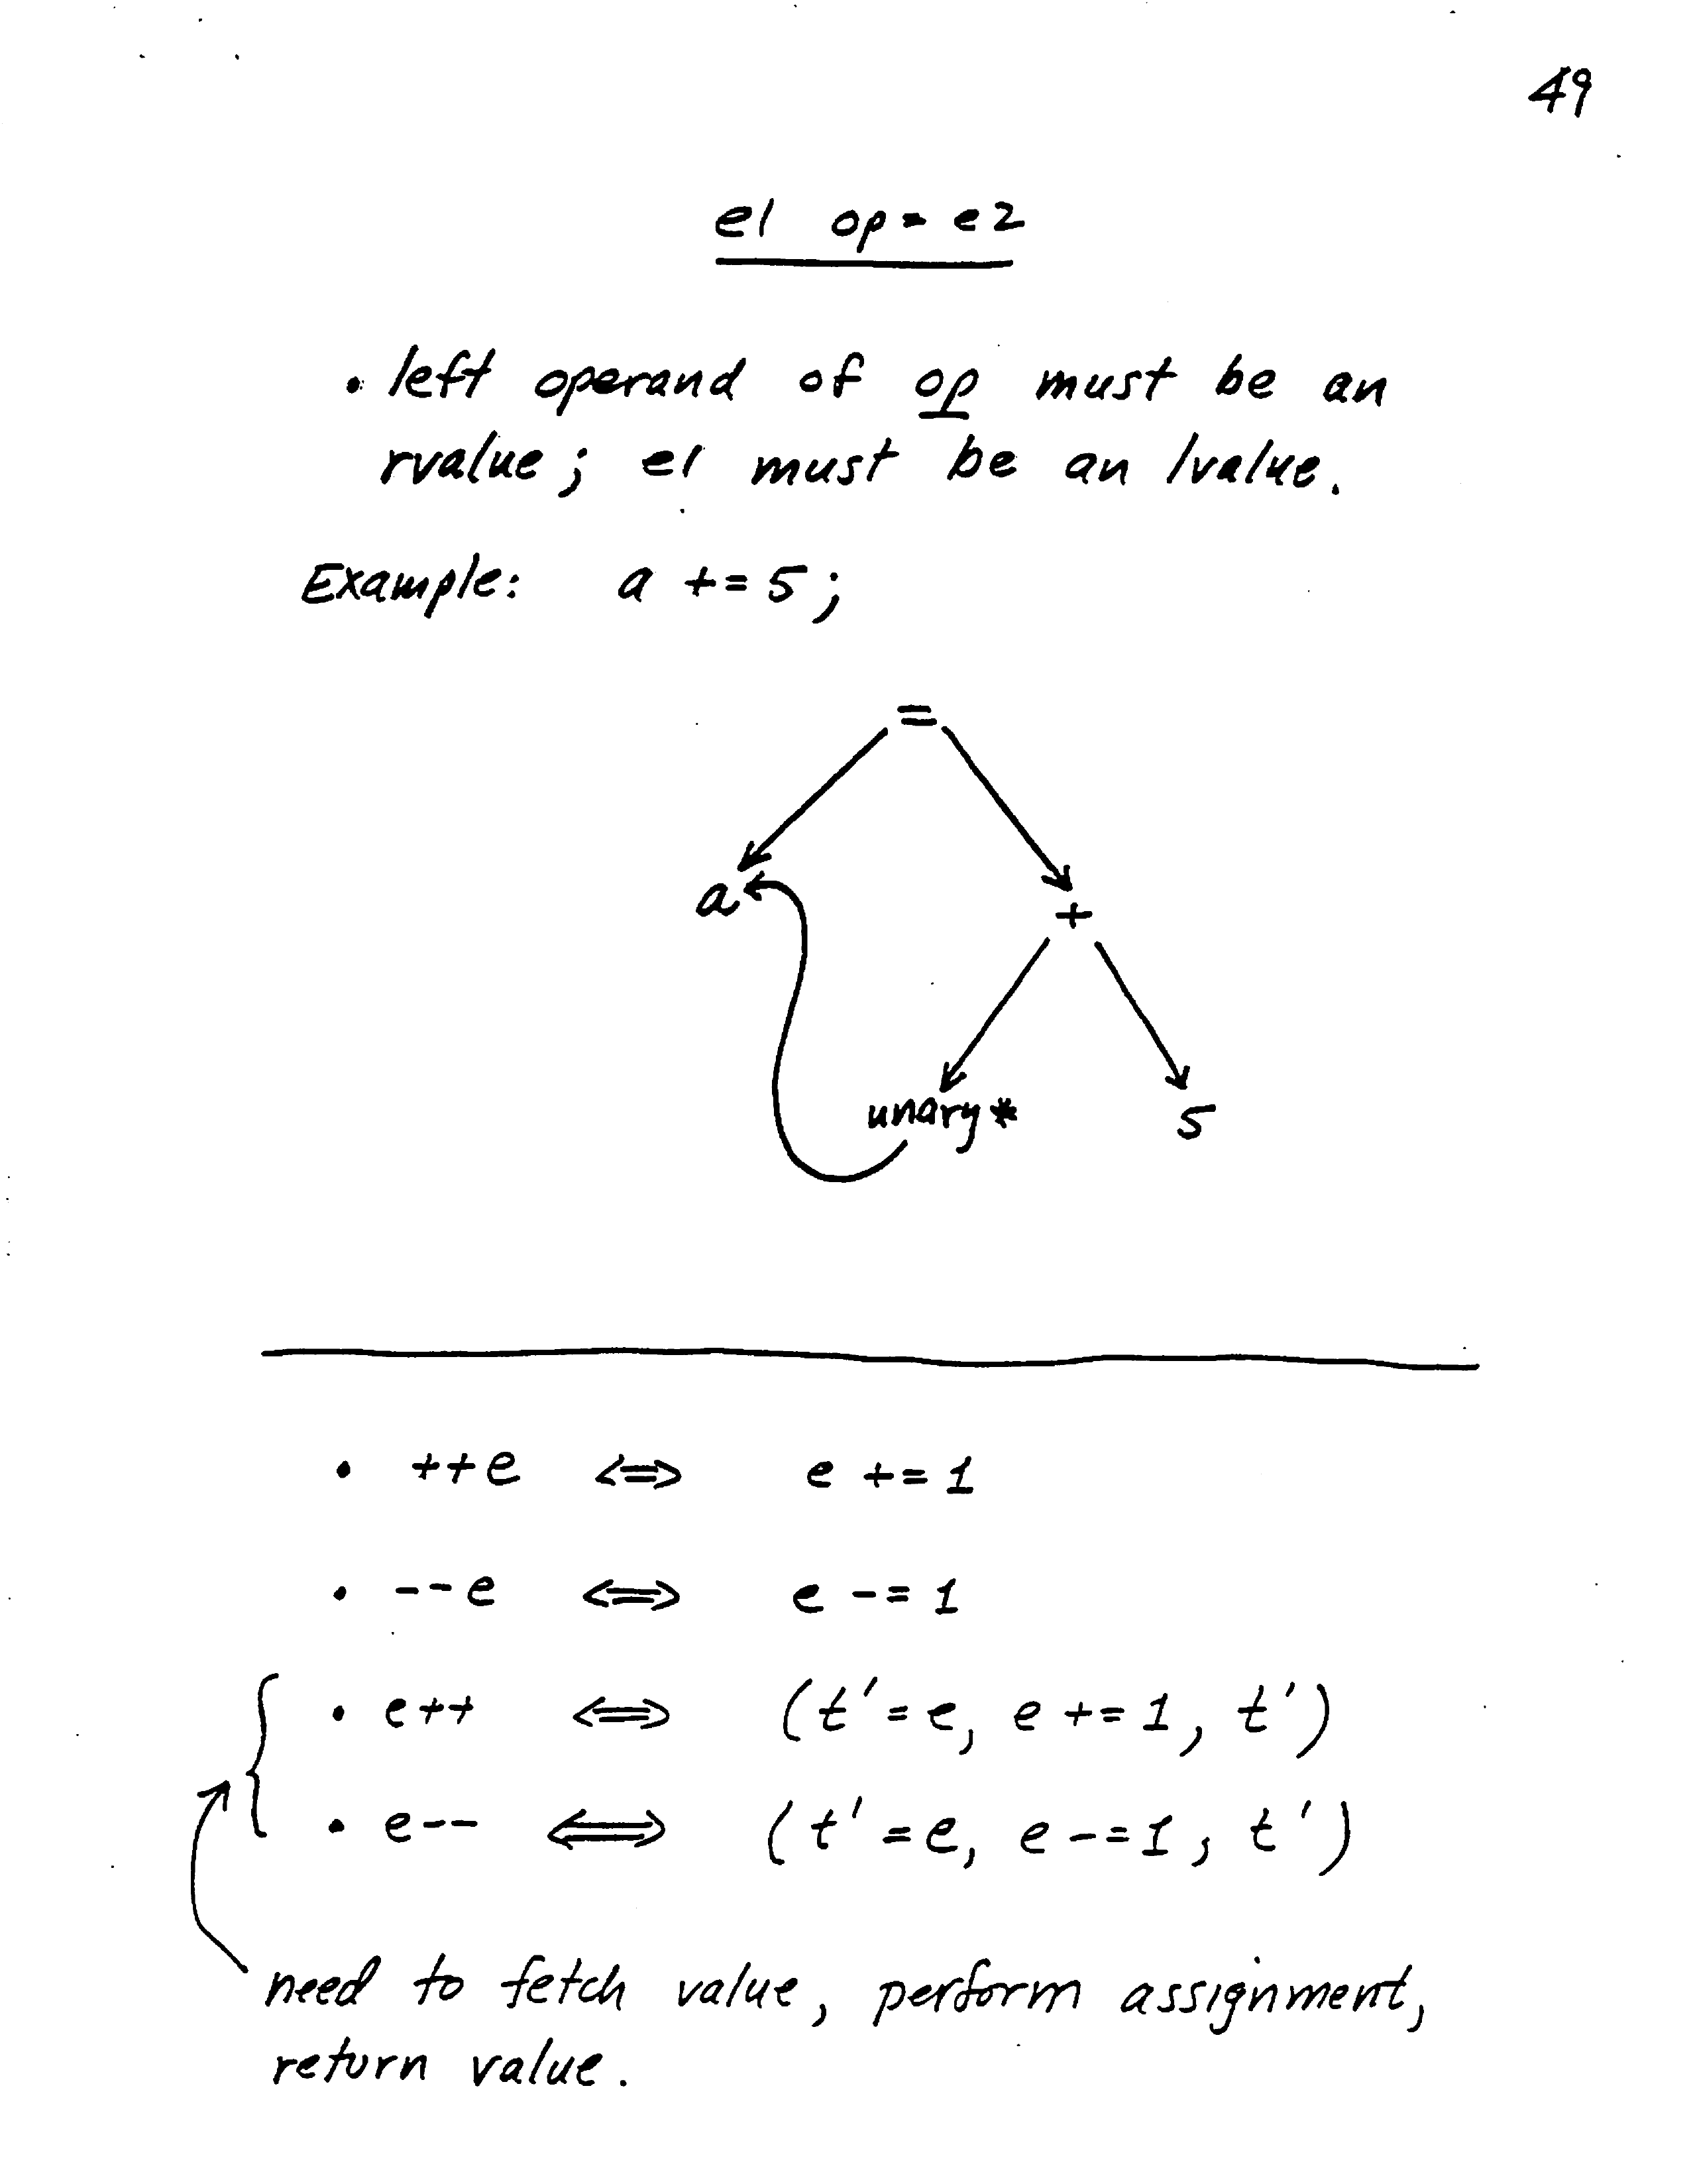 49
e1 op= e2
• left operand of op must be an
rvalue; e1 must be an lvalue.
Example: a += 5;
=
a
+
unary *
5
• ++e <=> e += 1
• --e <=> e -= 1
• e++ <=> (t' = e, e += 1, t')
• e-- <=> (t' = e, e -= 1, t')
need to fetch value, perform assignment,
return value.